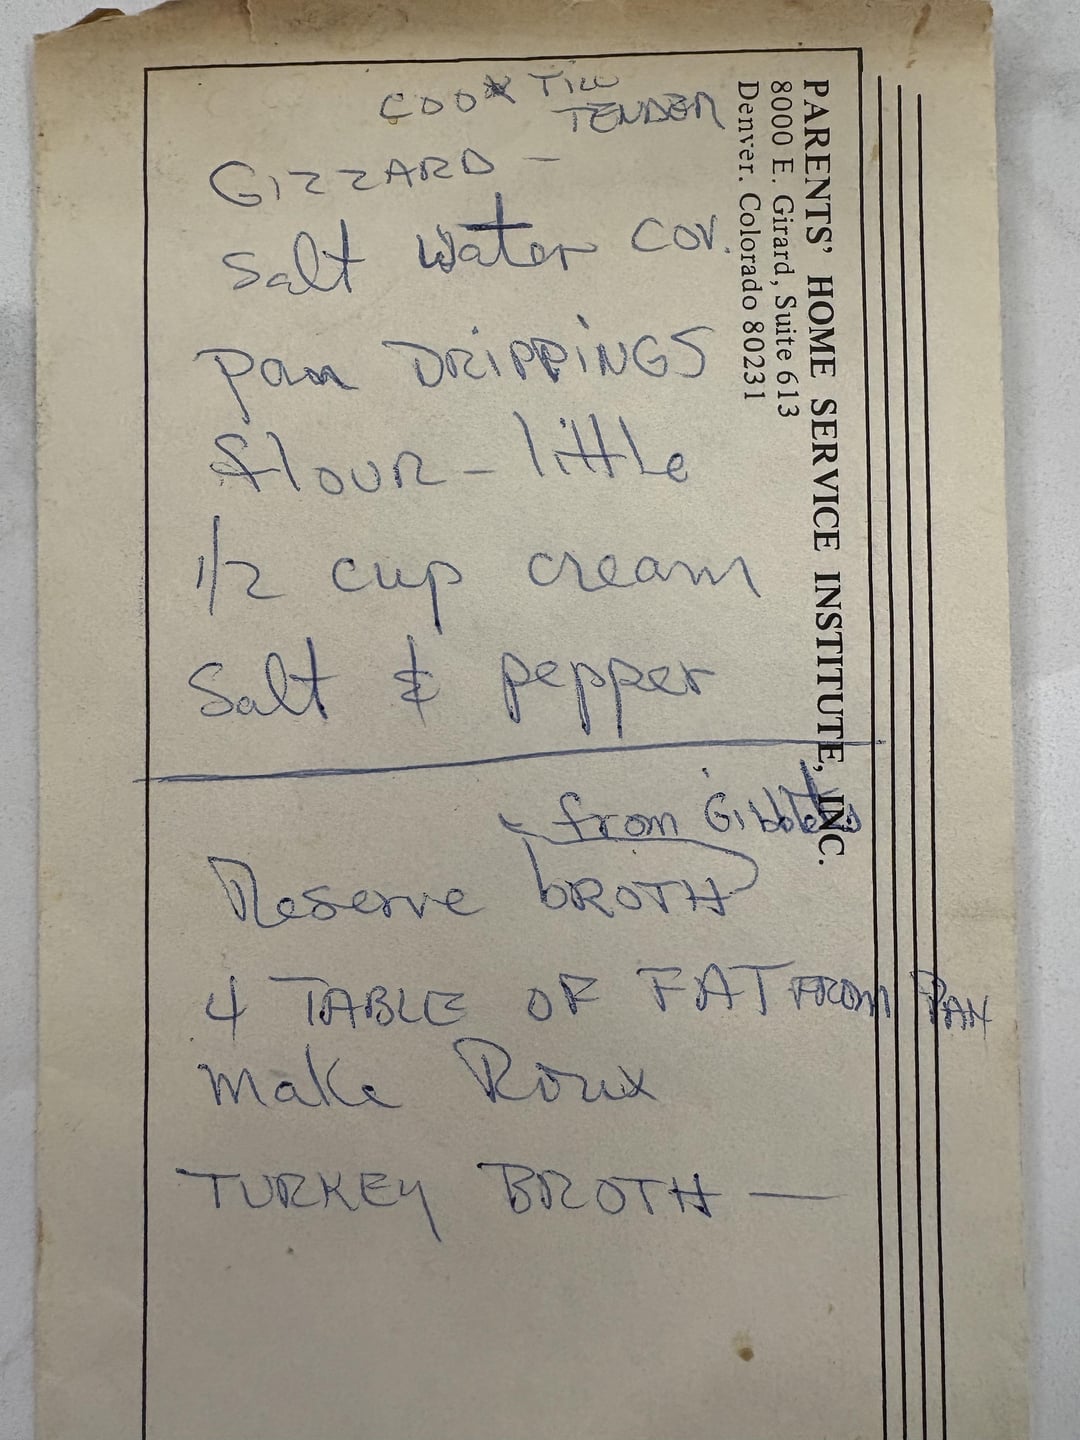 PARENTS' HOME SERVICE INSTITUTE, INC.
8000 E. Girard, Suite 613
Denver. Colorado 80231
COOK TILL
TENDER
GIZZARD -
Salt Water COV.
Pan DRIPPINGS
flour - little
1/2 cup cream
Salt & pepper
from Gibblets
Reserve BROTH
4 TABLE OF FAT FROM PAN
Make Roux
TURKEY BROTH —